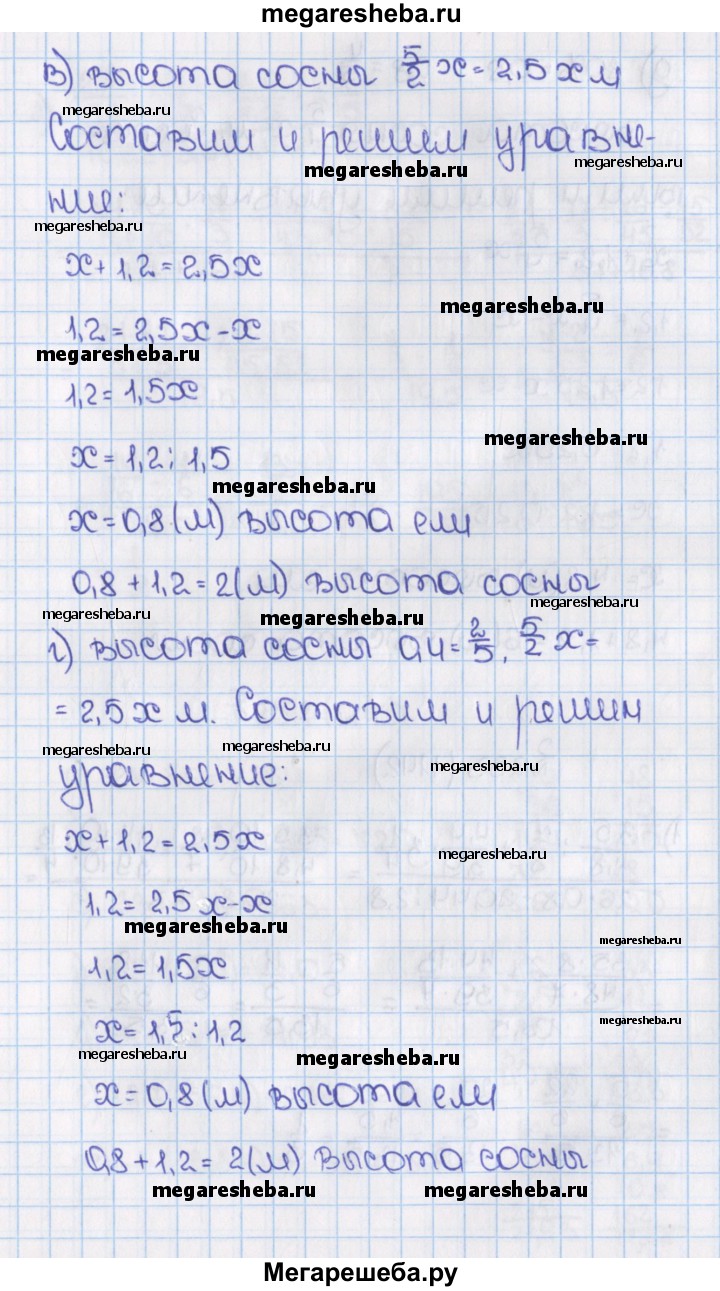 megaresheba.ru
в) высота сосны 5/2 x = 2,5 x м
megaresheba.ru
Составим и решим уравне-
megaresheba.ru
megaresheba.ru
ние:
megaresheba.ru
x + 1,2 = 2,5x
megaresheba.ru
1,2 = 2,5x - x
megaresheba.ru
1,2 = 1,5x
megaresheba.ru
x = 1,2 : 1,5
megaresheba.ru
x = 0,8 (м) высота ели
0,8 + 1,2 = 2 (м) высота сосны
megaresheba.ru
megaresheba.ru
megaresheba.ru
г) высота сосны 0,4 = 2/5, 5/2 x =
= 2,5 x м. Составим и решим
megaresheba.ru
megaresheba.ru
megaresheba.ru
уравнение:
x + 1,2 = 2,5x
megaresheba.ru
1,2 = 2,5x - x
megaresheba.ru
megaresheba.ru
1,2 = 1,5x
x = 1,5 : 1,2
megaresheba.ru
megaresheba.ru
megaresheba.ru
x = 0,8 (м) высота ели
0,8 + 1,2 = 2 (м) высота сосны
megaresheba.ru
megaresheba.ru
Мегарешеба.ру